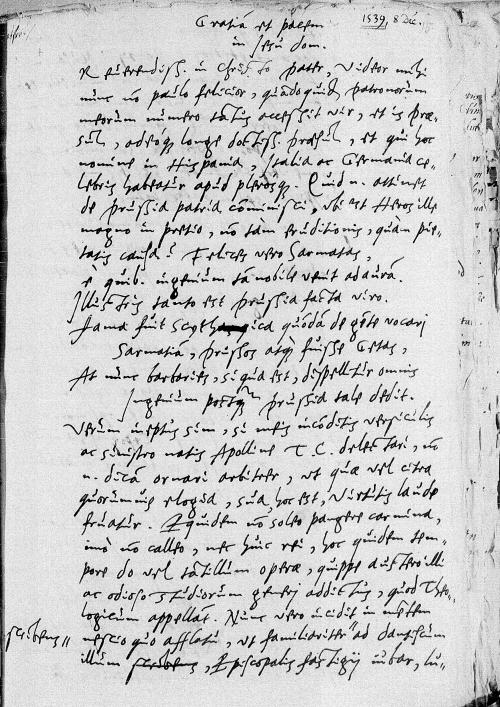 1539, 8 Dec.
Gratiā et pacem
in Jesu dom.
Reuerendiss. in Christo pater, Videor mihi
nunc nō paulo felicior, quādoquidē patronorum
meorum numero tātus accessit vir, et is præ-
sul, adeoq; longe doctiss. præsul, et qui hoc
nomine in Hispania, Italia ac Germania ce-
lebris habeatur apud plerosq;. Quid n. attinet
de Prussia patria cōminisci, vbi est Heros ille
magno in pretio, nō tam eruditionis, quàm pie-
tatis causa? Felices vero Sarmatas,
è quib. ingenium tā nobile venit ad aurā.
Illustris tanto est Prussia facta viro.
Fama fuit Scythica quōdā de gēte vocari
Sarmatiā, Prussos atq; fuisse Getas,
At nunc barbaries, si qua est, dispellitur omnis
Ingenium postq̃ Prussia tale dedit.
Verum ineptus sim, si meis incōditis versiculis
ac sinistro natis Apolline T. C. delectari, nō
n. dicā ornari arbitrer, vt quæ vel citra
quorumuis elogia, sua, hoc est, virtutis laude
fruatur. Equidem nō soleo pangere carmina,
imò nō calleo, nec huic rei, hoc quidem tem-
pore do vel tātillum operæ, quippe austero illi
ac odioso studiorum generi addictus, quod Theo-
logicum appellāt. Nunc vero incidit in mentem
nescio quo afflatu, vt familiariter ad Dantiscum
scribens
illum scribens, Episcopalis fastigij iubar, lu-